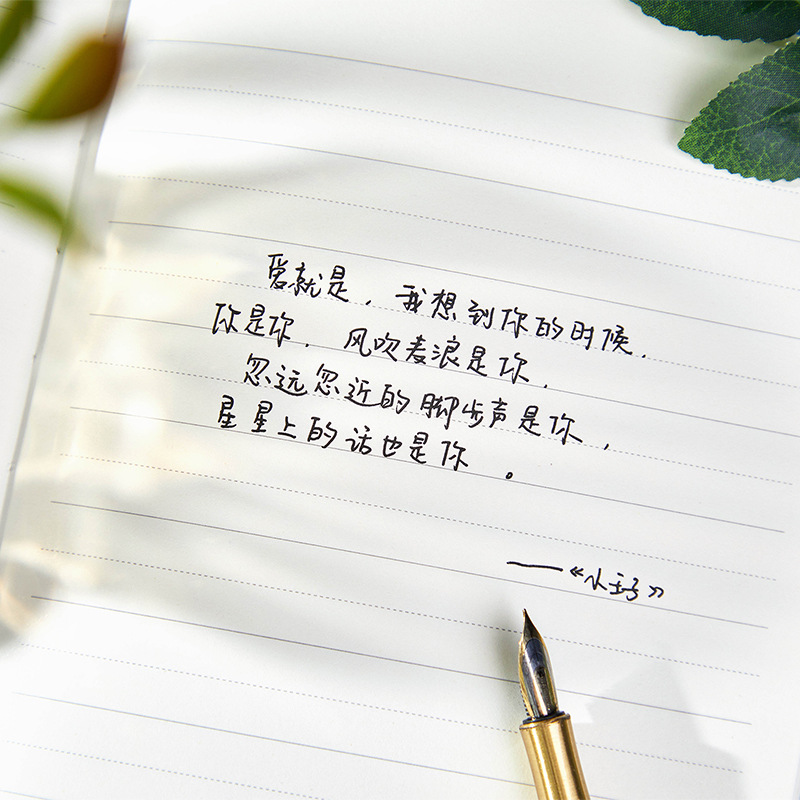 爱就是，我想到你的时候，
你是你，风吹麦浪是你，
忽远忽近的脚步声是你，
星星上的话也是你。
——《小王子》